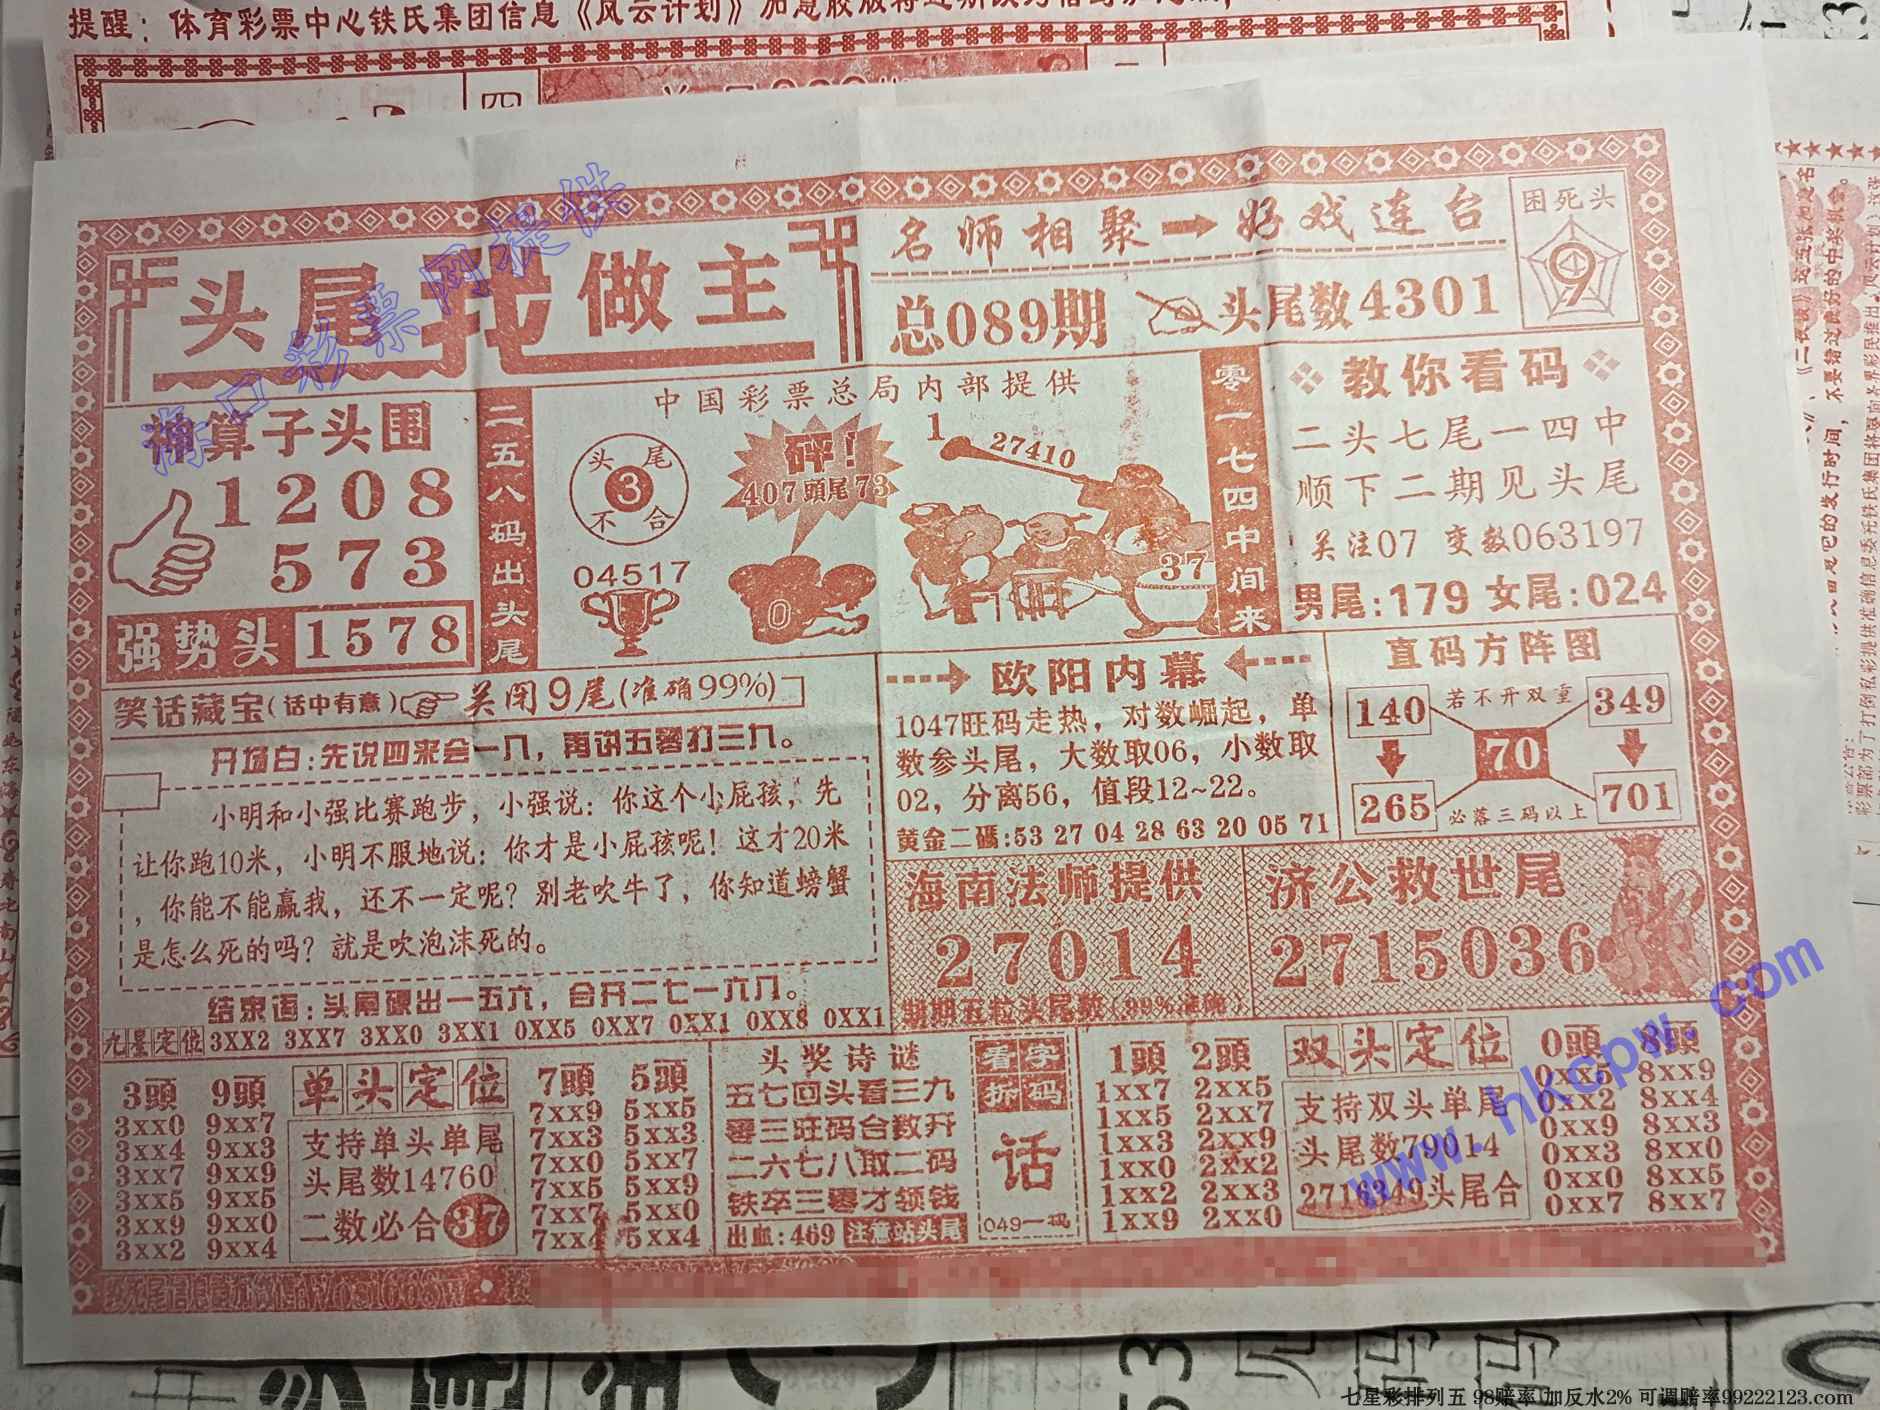 提醒：体育彩票中心铁氏集团信息《风云计划》加急胶版将近期
四
头尾我做主
名师相聚→好戏连台
困死头
9
总089期
头尾数4301
神算子头围
1208
573
强势头 1578
二五八码出头尾
中国彩票总局内部提供
头尾
3
不合
04517
砰！
407頭尾73
0
1
27410
37
零一七四中间来
教你看码
二头七尾一四中
顺下二期见头尾
关注07 变数063197
男尾：179 女尾：024
笑话藏宝（话中有意）关闭9尾（准确99%）
开场白：先说四来会一八，再讲五零打三九。
小明和小强比赛跑步，小强说：你这个小屁孩，先
让你跑10米，小明不服地说：你才是小屁孩呢！这才20米
，你能不能赢我，还不一定呢？别老吹牛了，你知道螃蟹
是怎么死的吗？就是吹泡沫死的。
结束语：头尾硬出一五六，合开二七一六八。
九星定位 3XX2 3XX7 3XX0 3XX1 0XX5 0XX7 0XX1 0XX8 0XX1
欧阳内幕
1047旺码走热，对数崛起，单
数参头尾，大数取06，小数取
02，分离56，值段12~22。
黄金二碼：53 27 04 28 63 20 05 71
直码方阵图
140 若不开双重 349
70
265 必落三码以上 701
海南法师提供
27014
期期五粒头尾数（99%准确）
济公救世尾
2715036
3頭 9頭
3xx0 9xx7
3xx4 9xx3
3xx7 9xx9
3xx5 9xx5
3xx9 9xx0
3xx2 9xx4
单头定位
支持单头单尾
头尾数14760
二数必合37
7頭 5頭
7xx9 5xx5
7xx3 5xx3
7xx0 5xx7
7xx5 5xx9
7xx7 5xx0
7xx4 5xx4
头奖诗谜
五七回头看三九
零三旺码合数开
二六七八取二码
铁卒三零才领钱
出血：469 注意站头尾
看字拆码
话
049一码
1頭 2頭
1xx7 2xx5
1xx5 2xx7
1xx3 2xx9
1xx0 2xx2
1xx2 2xx3
1xx9 2xx0
双头定位
支持双头单尾
头尾数79014
2716349头尾合
0頭 8頭
0xx5 8xx9
0xx2 8xx4
0xx9 8xx3
0xx3 8xx0
0xx0 8xx5
0xx7 8xx7
海口彩票网提供
www.hkcpw.com
七星彩排列五 98赔率 加反水2% 可调赔率99222123.com